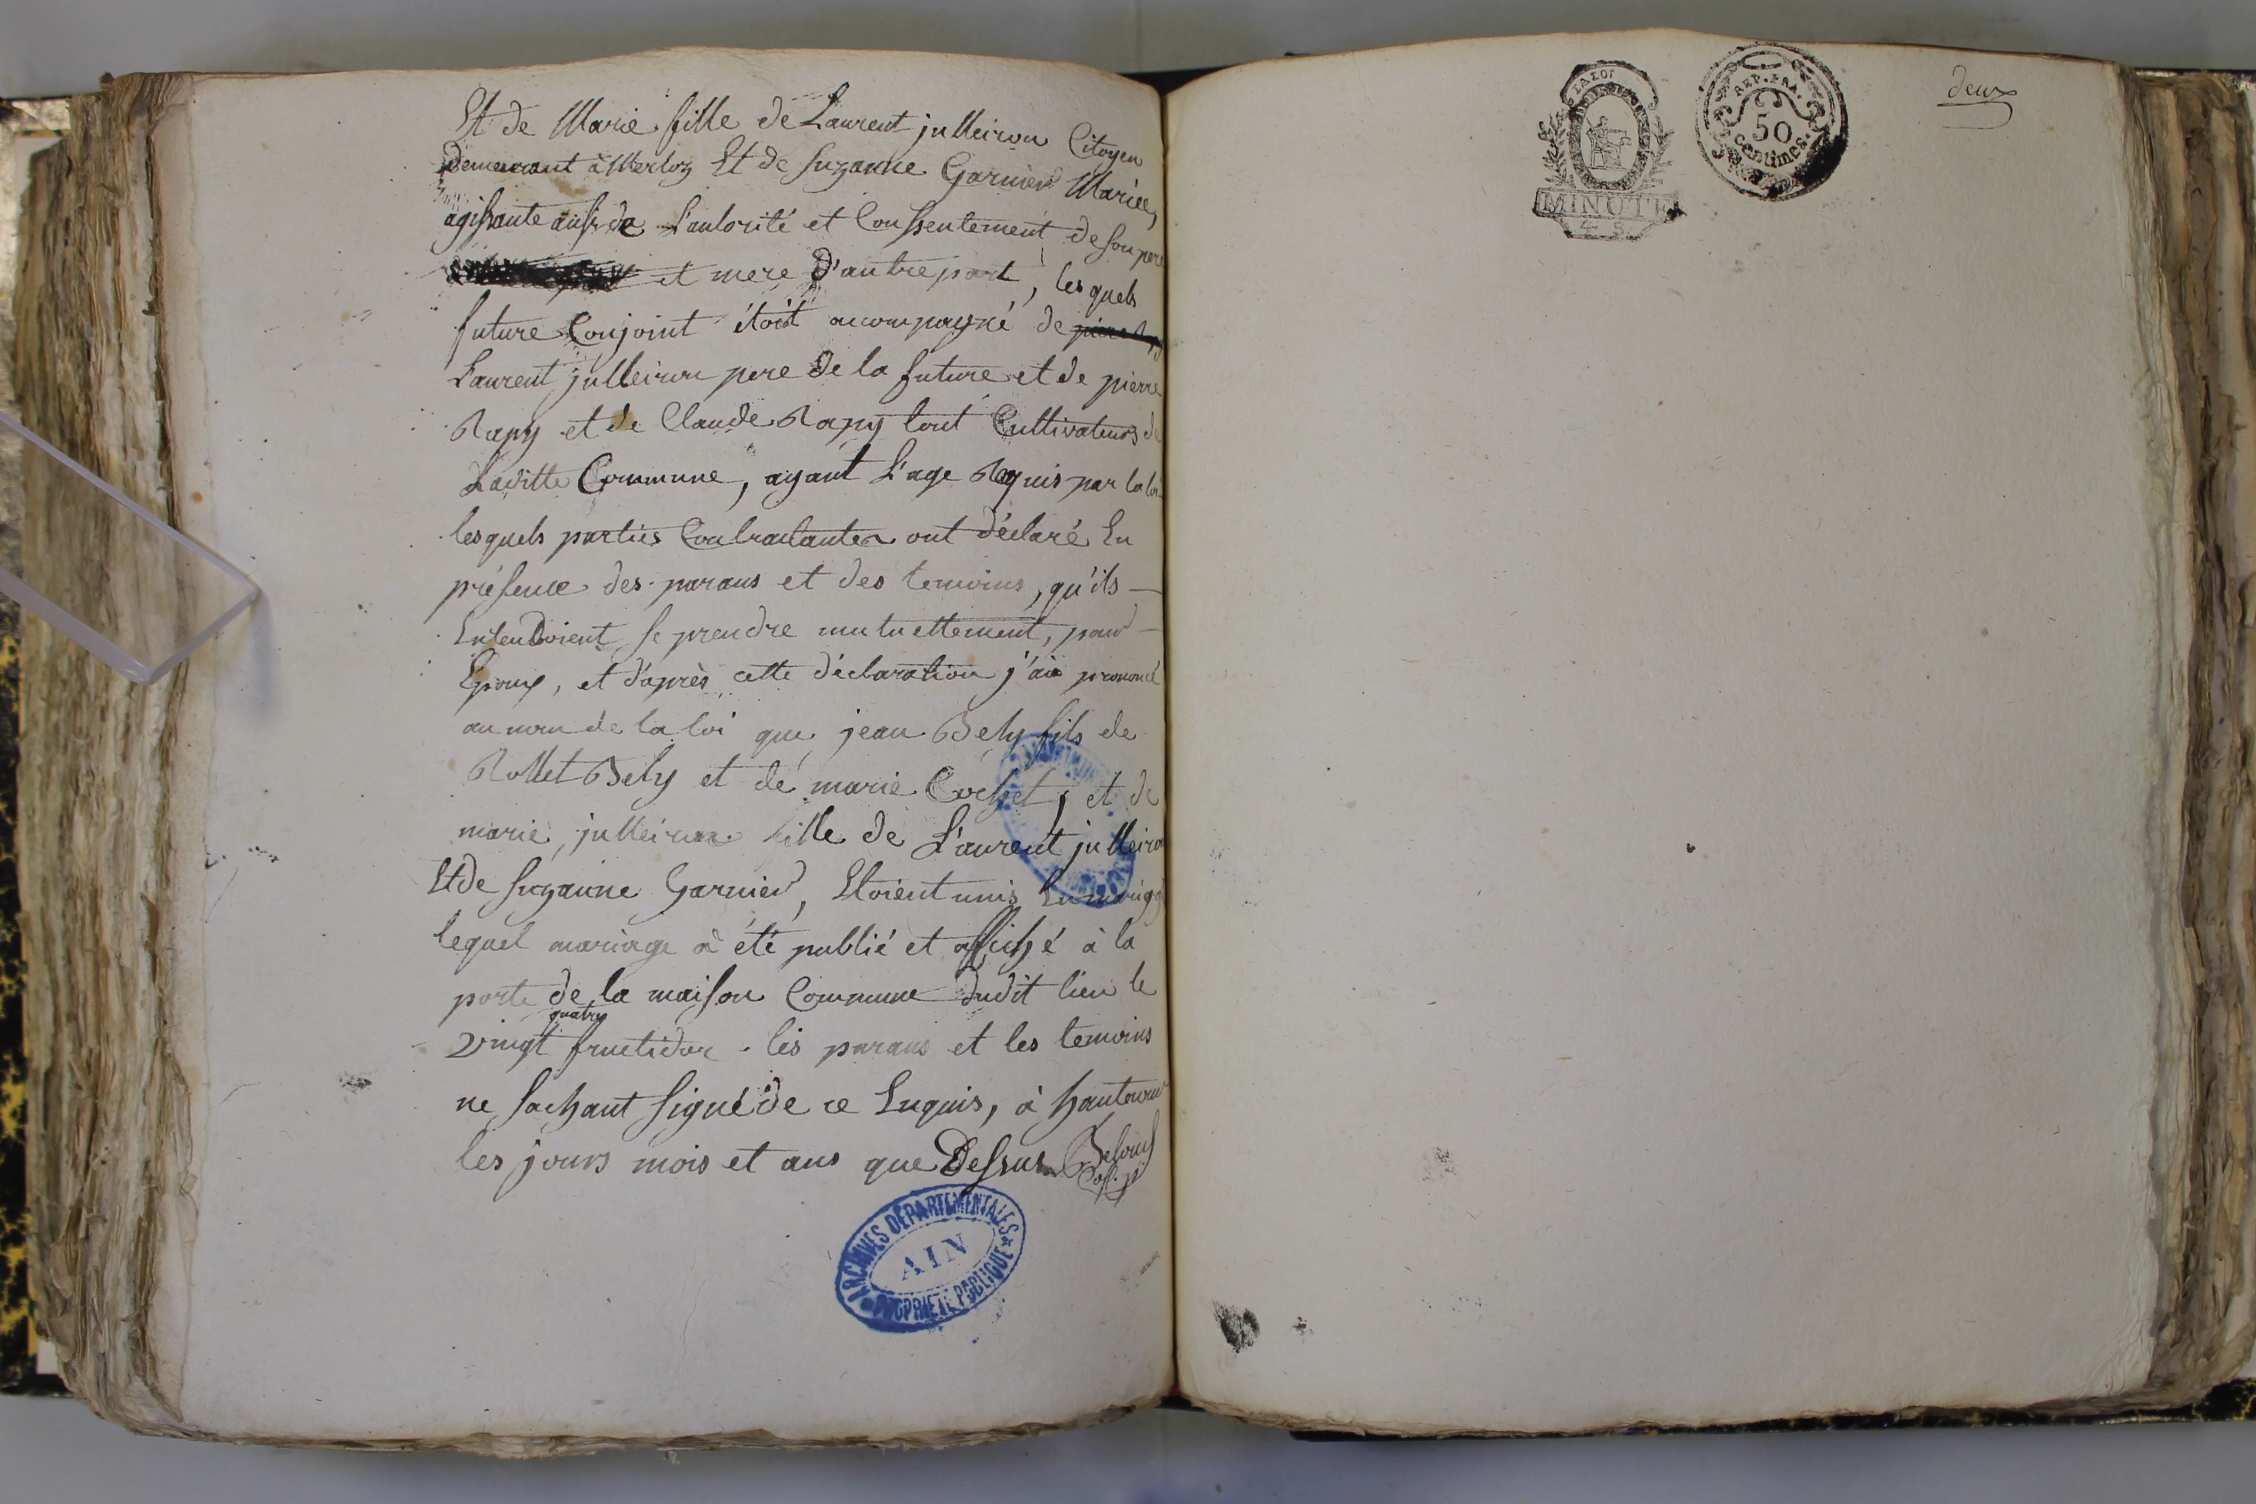 Et de Marie fille de Laurent julleiron Citoyen
demeurant à Merloz Et de Suzanne Garnier Mariée,
agissante ausi de L'autorité et Conssentement de son pere
et mere D'autre part, les quels
future Conjoint étoit accompagné de
Laurent julleiron pere de la future et de pierre
Rapy et de Claude Rapy tout Cultivateurs de
Laditte Commune, ayant L'age Requis par la loi
les quels parties Contractantes ont déclaré En
présence des parans et des temoins, qu'ils
Entendoient se prendre mutuellement, pour
Epoux, et d'après cette déclaration j'ai prononcé
au nom de la loi que jean Bely fils de
Rollet Bely et de marie Cochet, et de
marie julleiron fille de Laurent julleiron
Et de Suzanne Garnier, Etoient unis En mariage
lequel mariage à été publié et affiché à la
porte de la maison Commune dudit lieu le
quatre
vingt fructidor . les parans et les temoins
ne sachant signé de ce Enquis, à hautecour
les jours mois et ans que Dessus
ARCHIVES DÉPARTEMENTALES
AIN
PROPRIÉTÉ PUBLIQUE
MINUTE
REP. FRA.
50
centimes.
deux